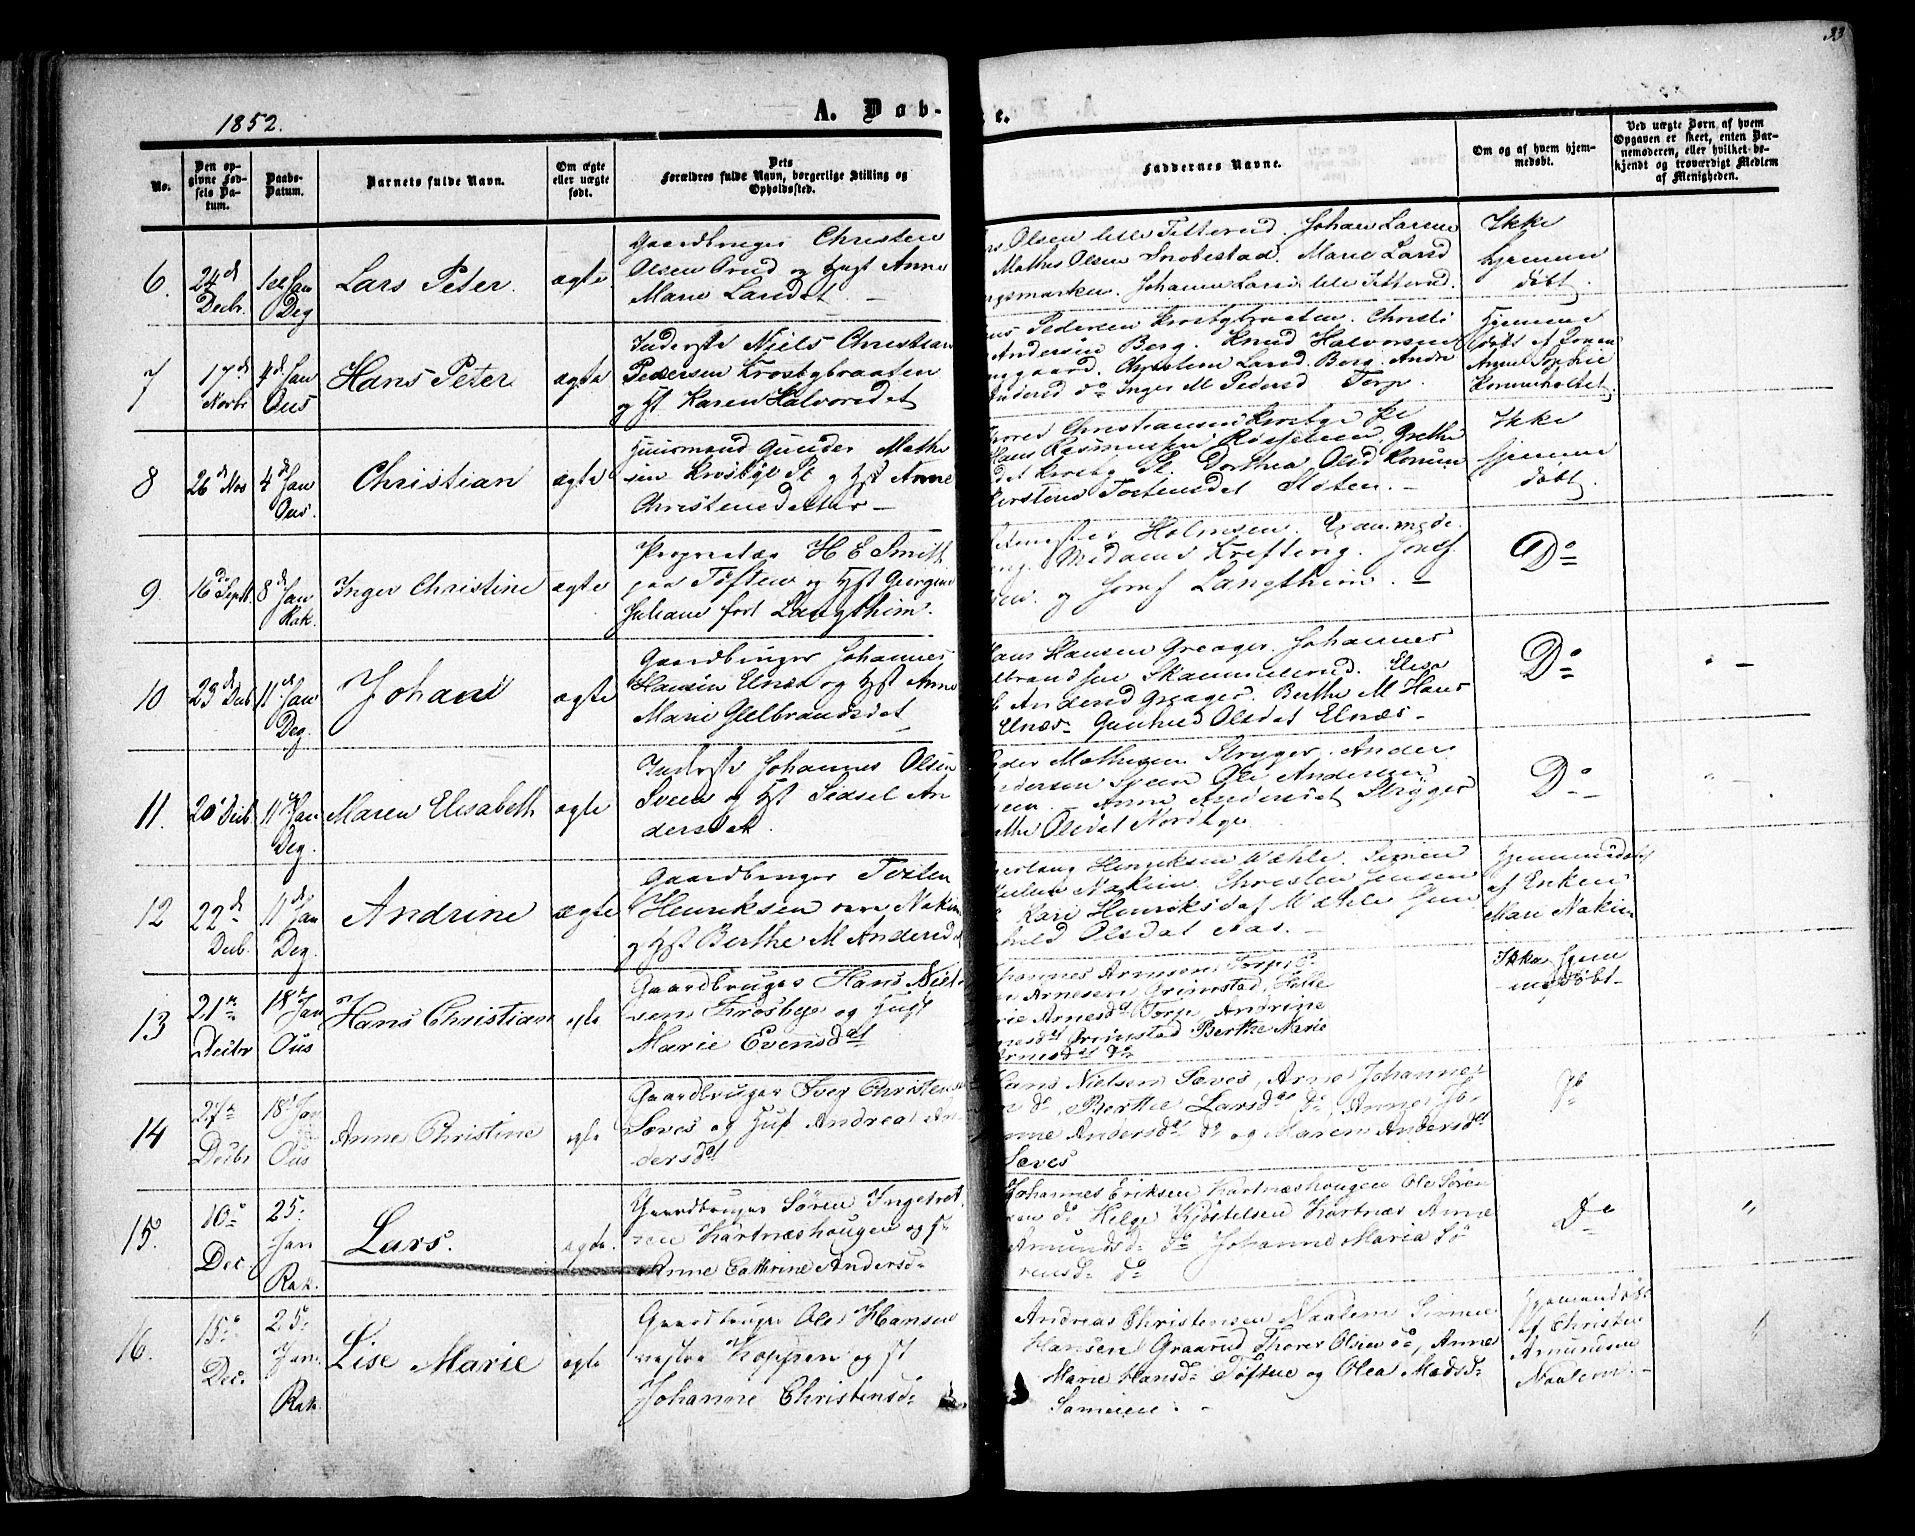 33
1852.
A. Døb-
e.
No.
Den op-
givne Fød-
sels Da-
tum.
Daabs-
Datum.
Barnets fulde Navn.
Om ægte
eller uægte
født.
Dets
Forældres fulde Navn, borgerlige Stilling og
Opholdssted.
Faddernes Navne.
Om og af hvem hjem-
medøbt.
Ved uægte Børn af hvem
Opgaven er skeet, enten Bar-
nemoderen, eller hvilket be-
kjendt og troværdigt Medlem
af Menigheden.
6.
24d
Decbr
1ste Jan
Deg
Lars Peter.
ægte
Gaardbruger Christen
Olsen Orud og Hust Anne
Marie Larsdet. —
Olsen lille Titterud. Johan Larsen
Mathis Olsen Snobestad. Marie Larsd
Johanne Larsd lille Titterud.
Ikke
hjemme
døbt.
7
17d
Novbr
4d Jan
Ous
Hans Peter
ægte
Inderste Niels Christian
Pedersen Krosbybraaten
og Hst Karen Halvorsdet
Pedersen Krosbybraaten. Christi
Andersen Berg. Knud Halvorsen
gaard. Christine Larsd. Berg. Andr
do Inger M Pedersd Torp.
Hjemme
døbt af Konen
Anne Sophie
Kornerholtet
8
26d Nov
4d Jan
Ous.
Christian
ægte
Huusmand Gunder Mathi
sen Krosbye Pl og Hst Anne
Christensdatter —
Thorer Christiansen Krosbye Pl
Hans Rasmussen Grethe
det Krosby Pl. Dorthea Olsd Korsøn
Torstensdet Sloten. —
Ikke
hjemme
døbt.
9.
16d Septb.
8d Jan
Rak.
Inger Christine
ægte
Proprietær H E Smith
paa Toften og Hst Georgine
Juliane født Langtheim.
Holmsen.
Madame Krefting. Josef
og Josef Langtheim. —
Do
10
23d Decb
11d Jan
Deg.
Johan
ægte
Gaardbruger Johannes
Hansen Elnes og Hst Anne
Marie Gulbrandsdet
Hans Hansen Greager. Johannes
lbrandsen Skammerud. Elise
Andersd Greager. Berthe M Hans
Elnæs. Gunhild Olsdat Elnæs —
Do
" —
11.
20d Decb
11d Jan
Deg.
Maren Elisabeth
ægte
Inderste Johannes Olsen
Sveen og Hst Sidsel An
dersdet.
Peder Mathisen Stryger. Ander
Pedersen Sveen Ole Andersen
Sveen. — Anne Andersdet Stryger
the Olsdat Nordbye
Do
" —
12
22d
Decb.
11d Jan
Deg.
Andrine
ægte
Gaardbruger Torsten
Henriksen Nakim
og Hst Berthe M Andersd
Erland Henriksen Wæhle. Simen
Nakim. Christen Jensen
Kari Henriksdat Wæhle Gun
hild Olsdat Aas. —
Hjemmedøbt
af Enken
Mari Nakim
13
21de
Decbr
18de Jan
Ous
Hans Christian
egte
Gaardbruger Hans Niel-
sen Krosbye og Hust
Marie Evensdat
Johannes Arnesen Torp,
Arnesen Grimstad, Helle
Marie Arnesdat Torp, Andrine
Arnesdat Grimstad Berthe Marie
Arnesdat do
Ikke hjem
medøbt
14
27de
Decbr
18de Jan
Ous
Anne Christine
egte
Gaardbruger Iver Christensen
Sæves og Hust Andrea An-
dersdat
Hans Nielsen Sæves, Arne Johanne-
do, Berthe Larsdat do, Anne Jo-
Andersdat do og Maren Andersdat
Sæves
do
15.
10de
Dec.
25.
Jan
Rak.
Lars.
ægte.
Gaardbruger Søren Ingebret-
sen Kartnæshougen og H
Anne Cathrine Andersd.
Johannes Eriksen Kartnæshougen Ole Søren
sen do Helge Kjøstelsen Kartnæs Anne
Amundsd. do Johanne Maria Sø
rensd. do
do
"
16.
15de
Dec.
25.
Jan.
Rak.
Lise Marie
egte
Gaardbruger Ole Hansen
vestre Koppen og H
Johanne Christensd.
Andreas Christensen Naalem Simen
Hansen Graarud Thorer Olsen do, Anne
Marie Hansd. Toftue og Olea Madsd.
Sameien. —
Hjemmedøbt
af Christen
Amundsen
Naalem. —